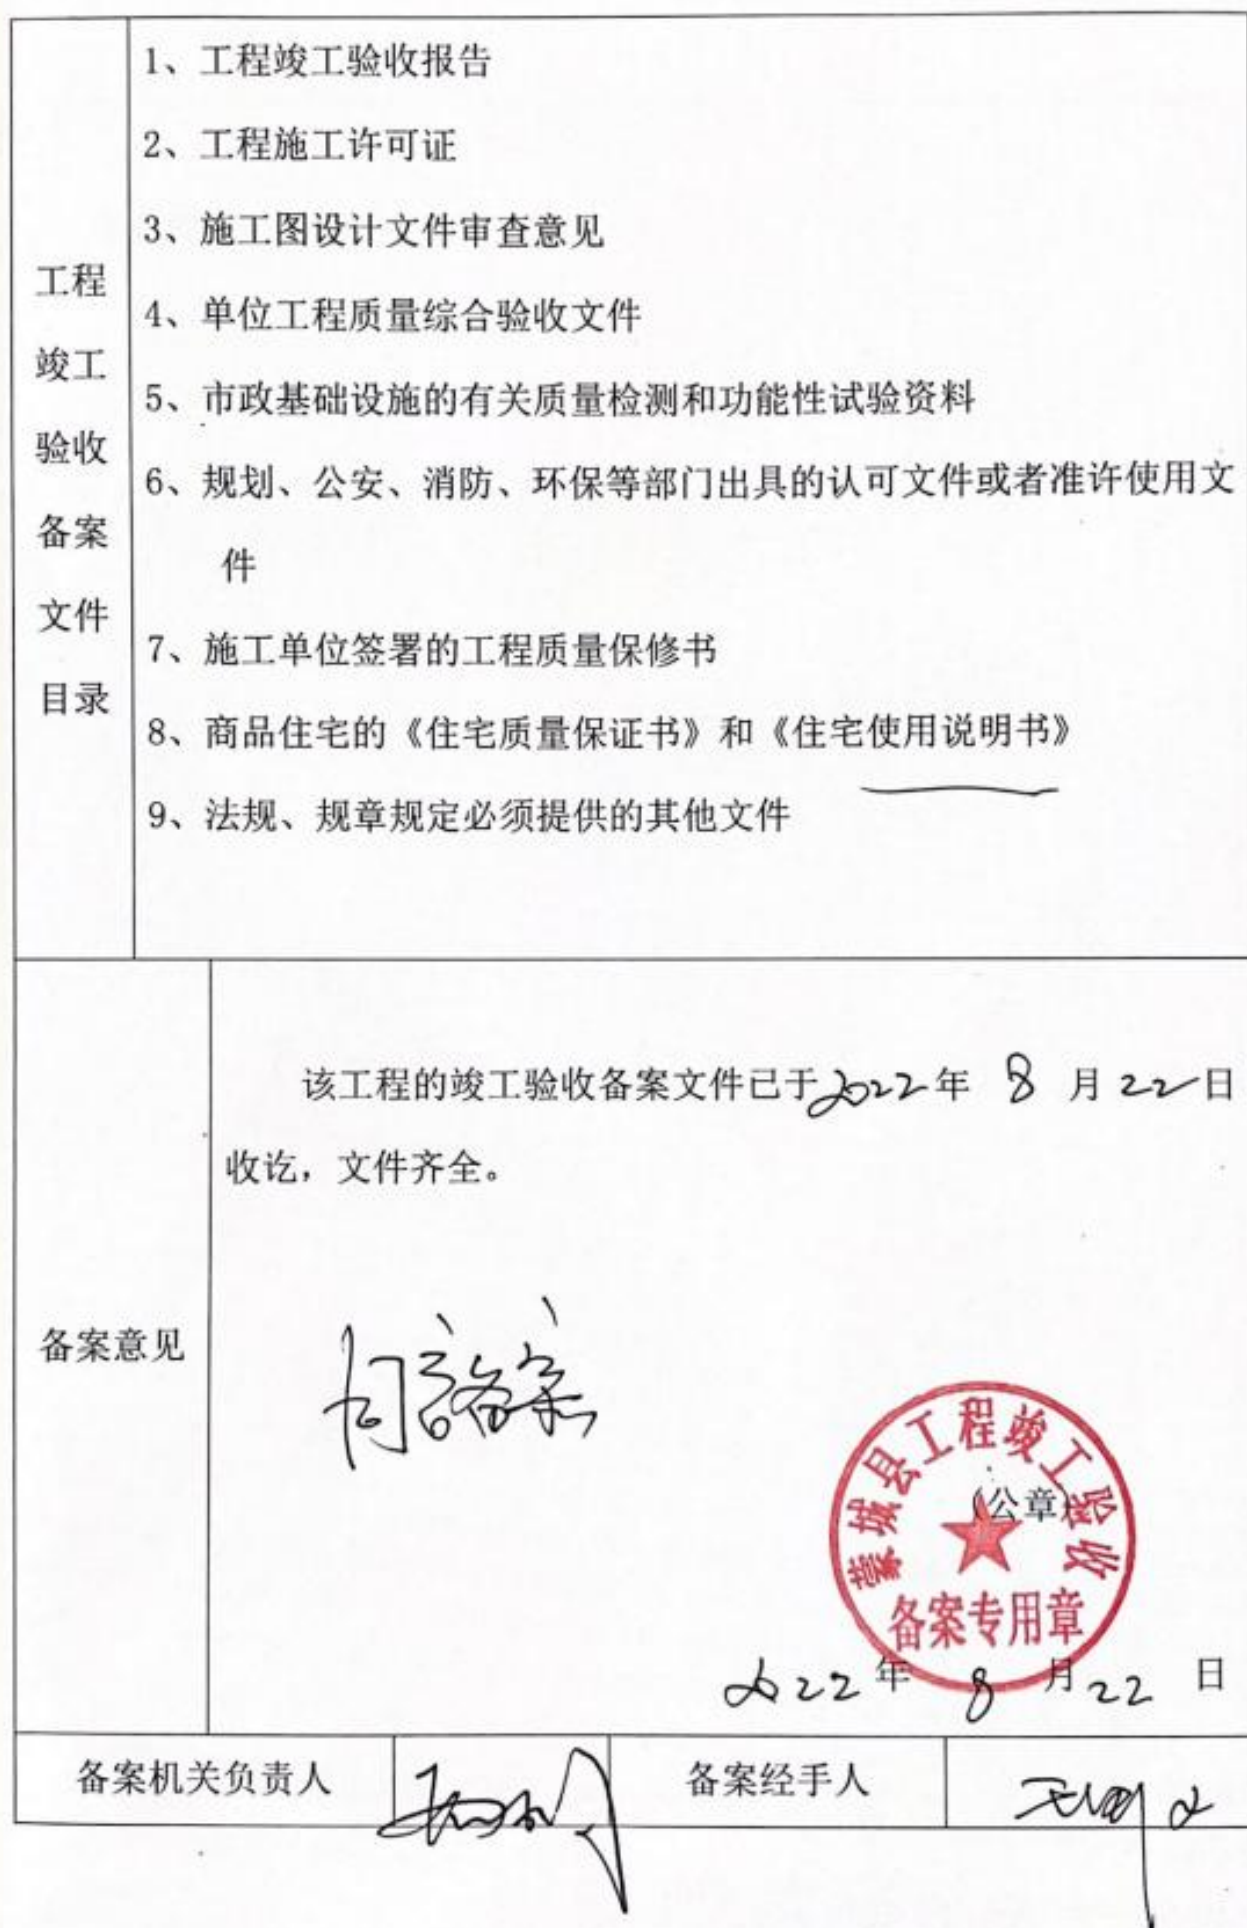 工程
竣工
验收
备案
文件
目录
1、工程竣工验收报告
2、工程施工许可证
3、施工图设计文件审查意见
4、单位工程质量综合验收文件
5、市政基础设施的有关质量检测和功能性试验资料
6、规划、公安、消防、环保等部门出具的认可文件或者准许使用文
件
7、施工单位签署的工程质量保修书
8、商品住宅的《住宅质量保证书》和《住宅使用说明书》
9、法规、规章规定必须提供的其他文件
备案意见
该工程的竣工验收备案文件已于2022年 8 月22日
收讫，文件齐全。
同意备案
（公章）
蒙城县工程竣工验收
备案专用章
2022年 8 月22 日
备案机关负责人
备案经手人